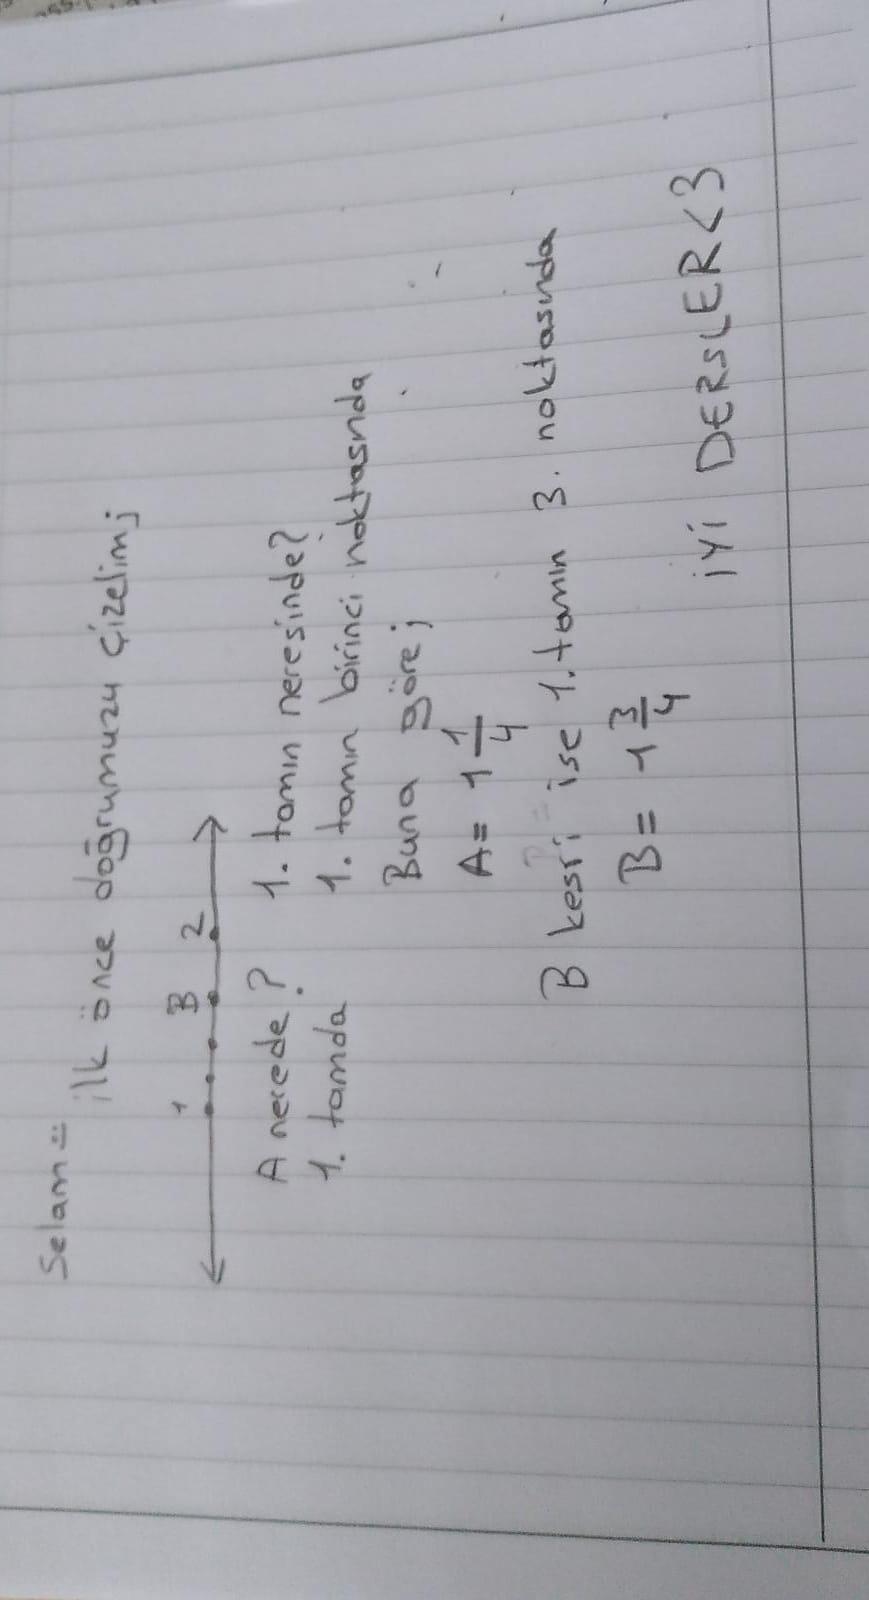 Selam =
ilk önce doğrumuzu çizelim;
1 B 2
A nerede? 1. tamın neresinde?
1. tamda 1. tamın birinci noktasında
Buna göre;
A = 1 1/4
B kesri ise 1. tamın 3. noktasında
B = 1 3/4
iYi DERSLER <3